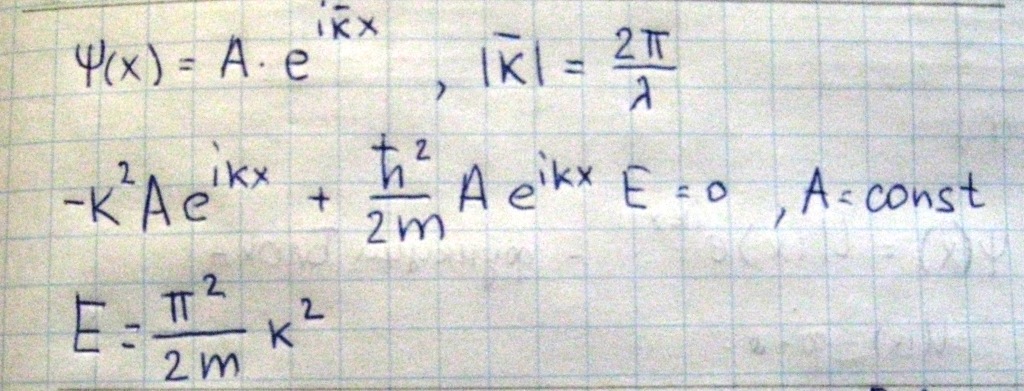 ψ(x) = A · e^{i k̄ x} , |k̄| = 2π/λ
-k²Ae^{ikx} + ħ²/2m A e^{ikx} E = 0 , A = const
E = π²/2m k²